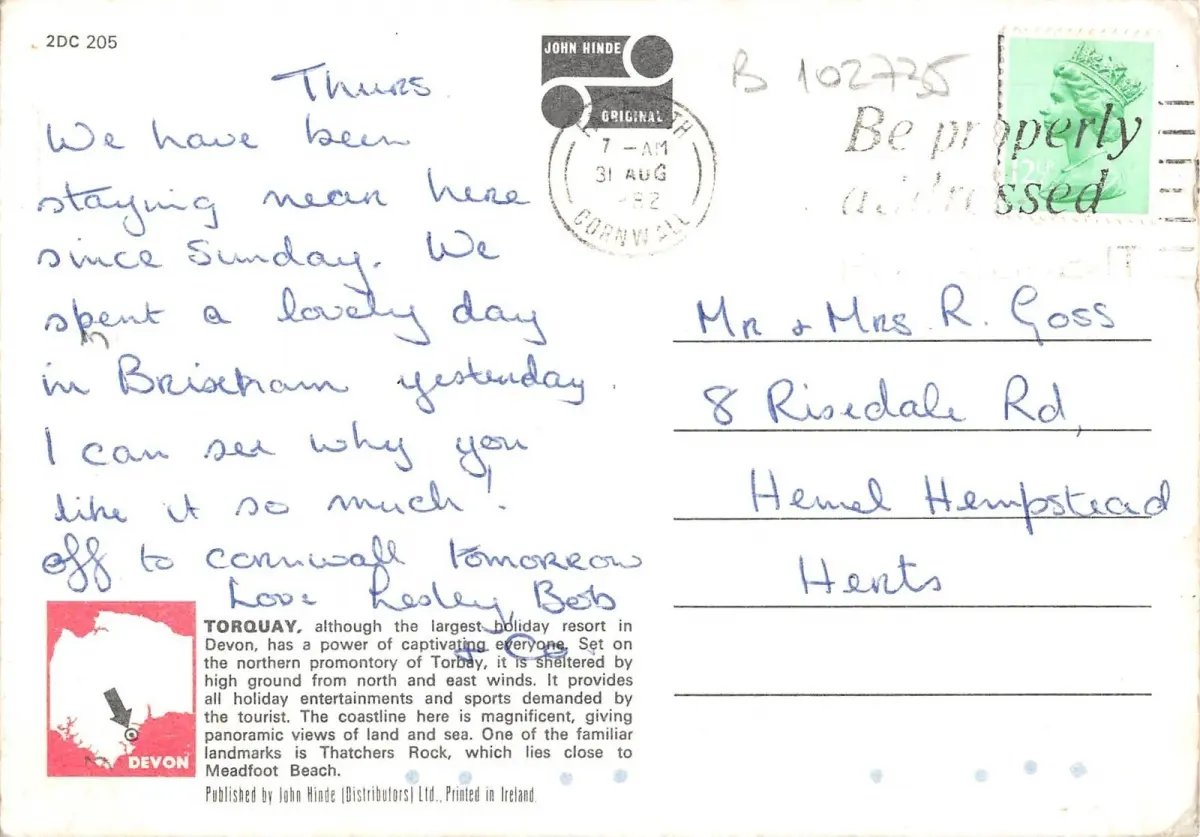 2DC 205
JOHN HINDE
ORIGINAL
B 102735
7 - AM
31 AUG
1982
CORNWALL
Be properly
addressed
12½P
Thurs
We have been
staying near here
since Sunday. We
spent a lovely day
in Brixham yesterday.
I can see why you
like it so much!
off to cornwall tomorrow
Love Lesley, Bob
& Co.
Mr & Mrs R. Goss
8 Risedale Rd,
Hemel Hempstead
Herts
TORQUAY, although the largest holiday resort in
Devon, has a power of captivating everyone. Set on
the northern promontory of Torbay, it is sheltered by
high ground from north and east winds. It provides
all holiday entertainments and sports demanded by
the tourist. The coastline here is magnificent, giving
panoramic views of land and sea. One of the familiar
landmarks is Thatchers Rock, which lies close to
Meadfoot Beach.
DEVON
Published by John Hinde (Distributors) Ltd., Printed in Ireland.